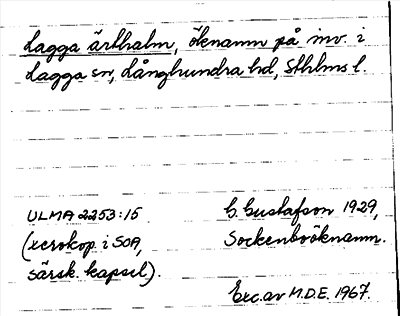 Lagga ärthalm, öknamn på inv. i
Lagga sn, Långhundra hd, Sthlms l.
ULMA 2253:15
(xerokop. i SOA,
särsk. kapsel).
G. Gustafson 1929,
Sockenboöknamn.
Exc. av M.D.E. 1967.